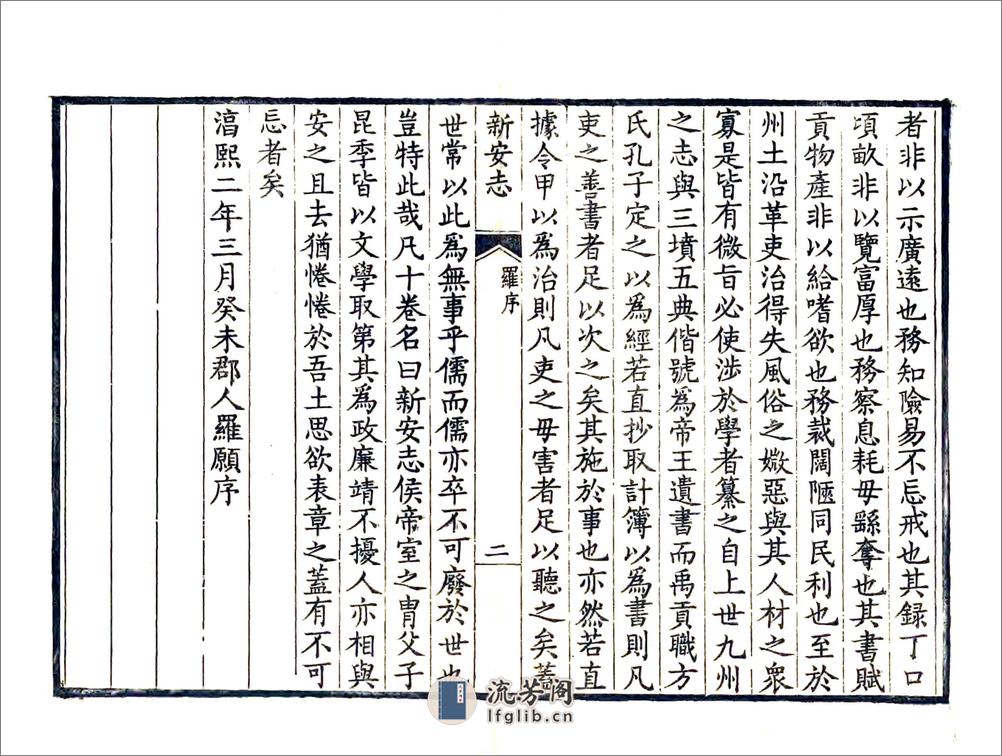 者非以示廣遠也務知險易不忘戒也其録丁口
頃畝非以覽富厚也務察息耗毋繇奪也其書賦
貢物產非以給嗜欲也務裁闊陿同民利也至於
州土沿革吏治得失風俗之媺惡與其人材之衆
寡是皆有微旨必使涉於學者纂之自上世九州
之志與三墳五典偕號爲帝王遺書而禹貢職方
氏孔子定之以爲經若直抄取計簿以爲書則凡
吏之善書者足以次之矣其施於事也亦然若直
據令甲以爲治則凡吏之毋害者足以聽之矣蓋
新安志
羅序
二
世常以此爲無事乎儒而儒亦卒不可廢於世也
豈特此哉凡十卷名曰新安志侯帝室之胄父子
昆季皆以文學取第其爲政廉靖不擾人亦相與
安之且去猶惓惓於吾土思欲表章之蓋有不可
忘者矣
淳熙二年三月癸未郡人羅願序
流芳阁
lfglib.cn